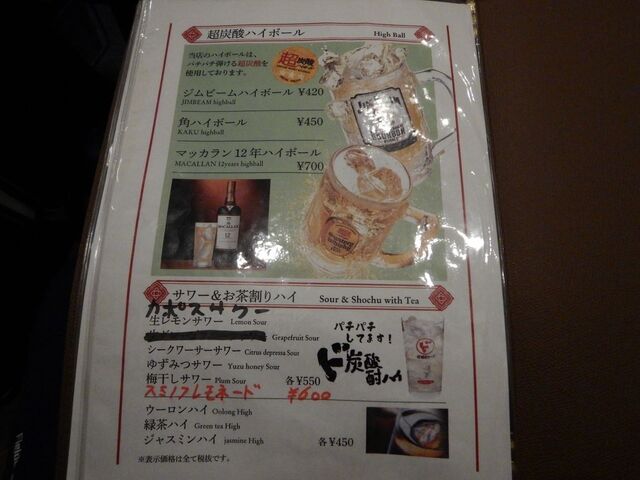 超炭酸ハイボール High Ball
当店のハイボールは、
パチパチ弾ける超炭酸を
使用しております。
超炭酸
ジムビームハイボール ¥420
JIMBEAM highball
角ハイボール ¥450
KAKU highball
マッカラン 12 年ハイボール
MACALLAN 12years highball ¥700
MACALLAN
12
サワー＆お茶割りハイ Sour & Shochu with Tea
カボスサワー
生レモンサワー Lemon Sour
Grapefruit Sour
シークワーサーサワー Citrus depressa Sour
ゆずみつサワー Yuzu honey Sour
梅干しサワー Plum Sour 各¥550
パチパチ
してます！
ド炭酸
酎ハイ
¥600
ウーロンハイ Oolong High
緑茶ハイ Green tea High
ジャスミンハイ jasmine High 各¥450
※表示価格は全て税抜です。